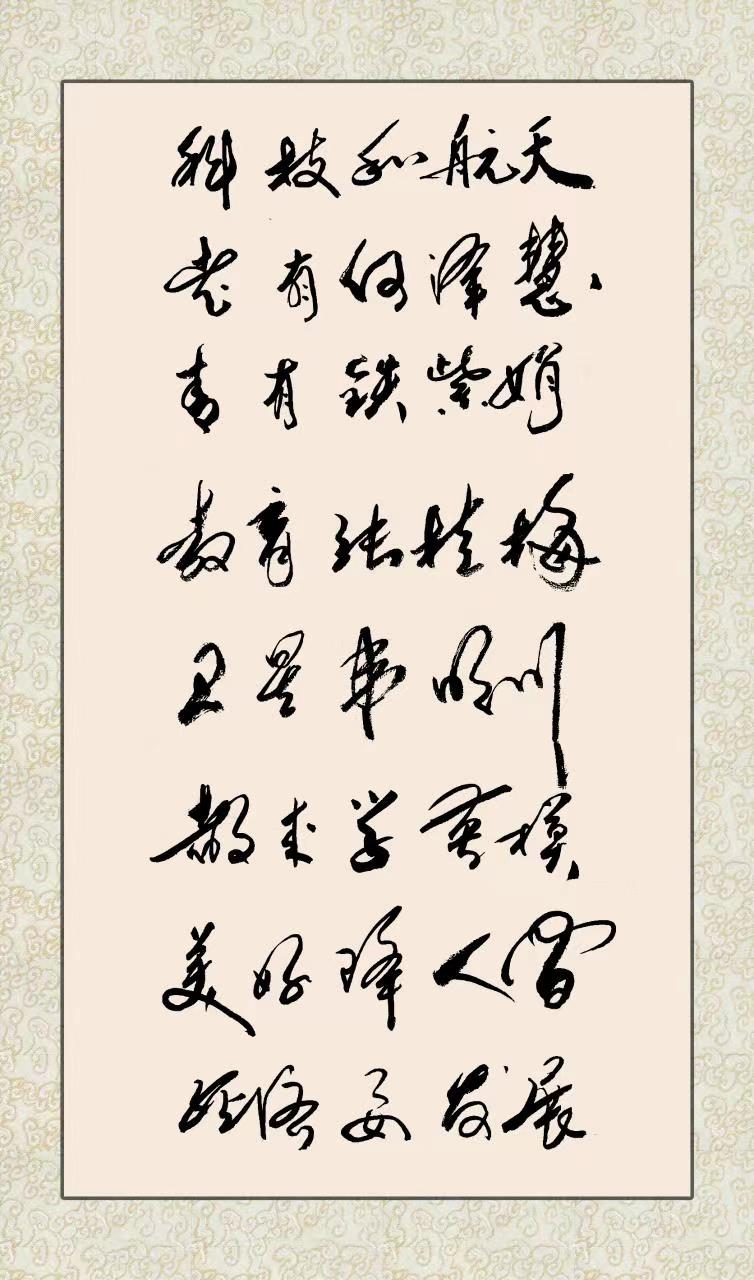 科技和航天
老有何泽慧
青有铁紫娟
教育张桂梅
卫星常明川
都来学英模
美好降人间
经济要发展